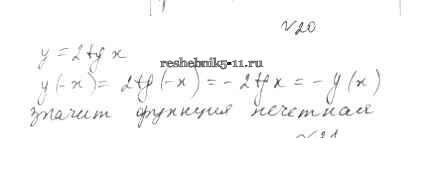 №20
y = 2tg x
reshebnik5-11.ru
y(-x) = 2tg(-x) = -2tgx = -y(x)
значит функция нечетная
№21